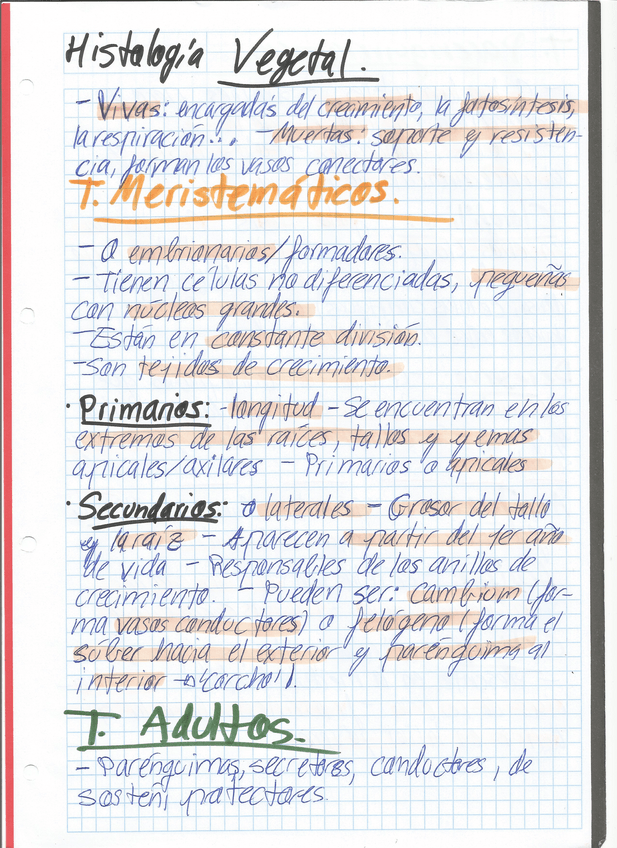 Histología Vegetal.
- Vivas: encargadas del crecimiento, la fotosíntesis,
la respiración... - Muertas: soporte y resisten-
cia, forman los vasos conectores.
T. Meristemáticos.
- O embrionarios/formadores.
- Tienen células no diferenciadas, pequeñas
con núcleos grandes.
- Están en constante división.
- Son tejidos de crecimiento.
· Primarios: - longitud - Se encuentran en los
extremos de las raíces, tallos y yemas
apicales/axilares - Primarios o apicales
· Secundarios: o laterales - Grosor del tallo
y la raíz - Aparecen a partir del 1er año
de vida - Responsables de los anillos de
crecimiento. - Pueden ser: cambium (for-
ma vasos conductores) o felógeno (forma el
súber hacia el exterior y parénquima al
interior → "corcho").
T. Adultos.
- Parénquimas, secretores, conductores, de
sostén, protectores.